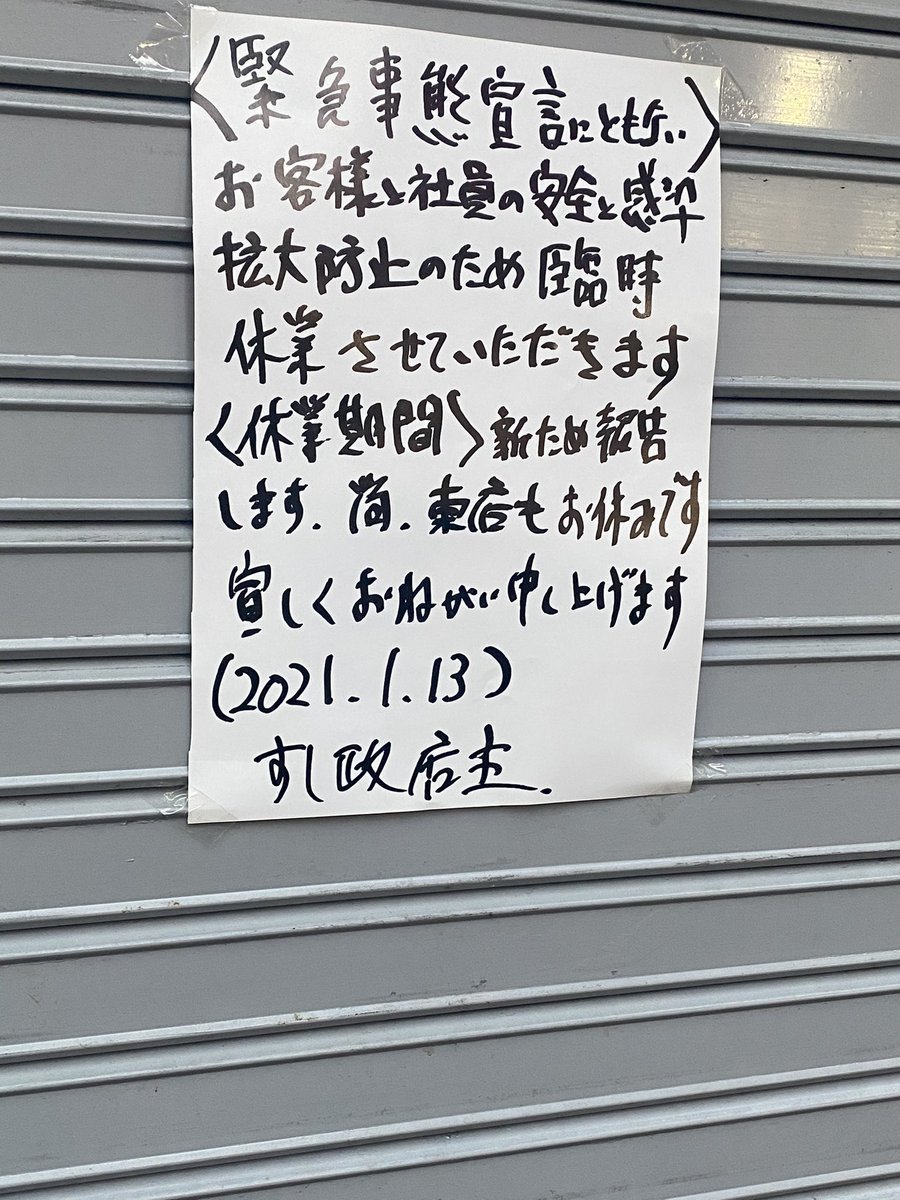 〈緊急事態宣言にともない〉
お客様と社員の安全と感染
拡大防止のため臨時
休業させていただきます
〈休業期間〉新ため報告
します.尚.東店もお休みです
宜しくおねがい申し上げます
(2021.1.13)
すし政店主.